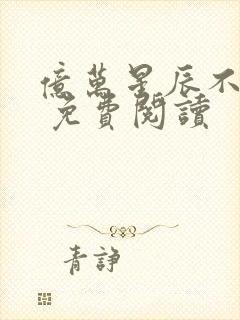 億萬星辰不
免費閱讀
青諍